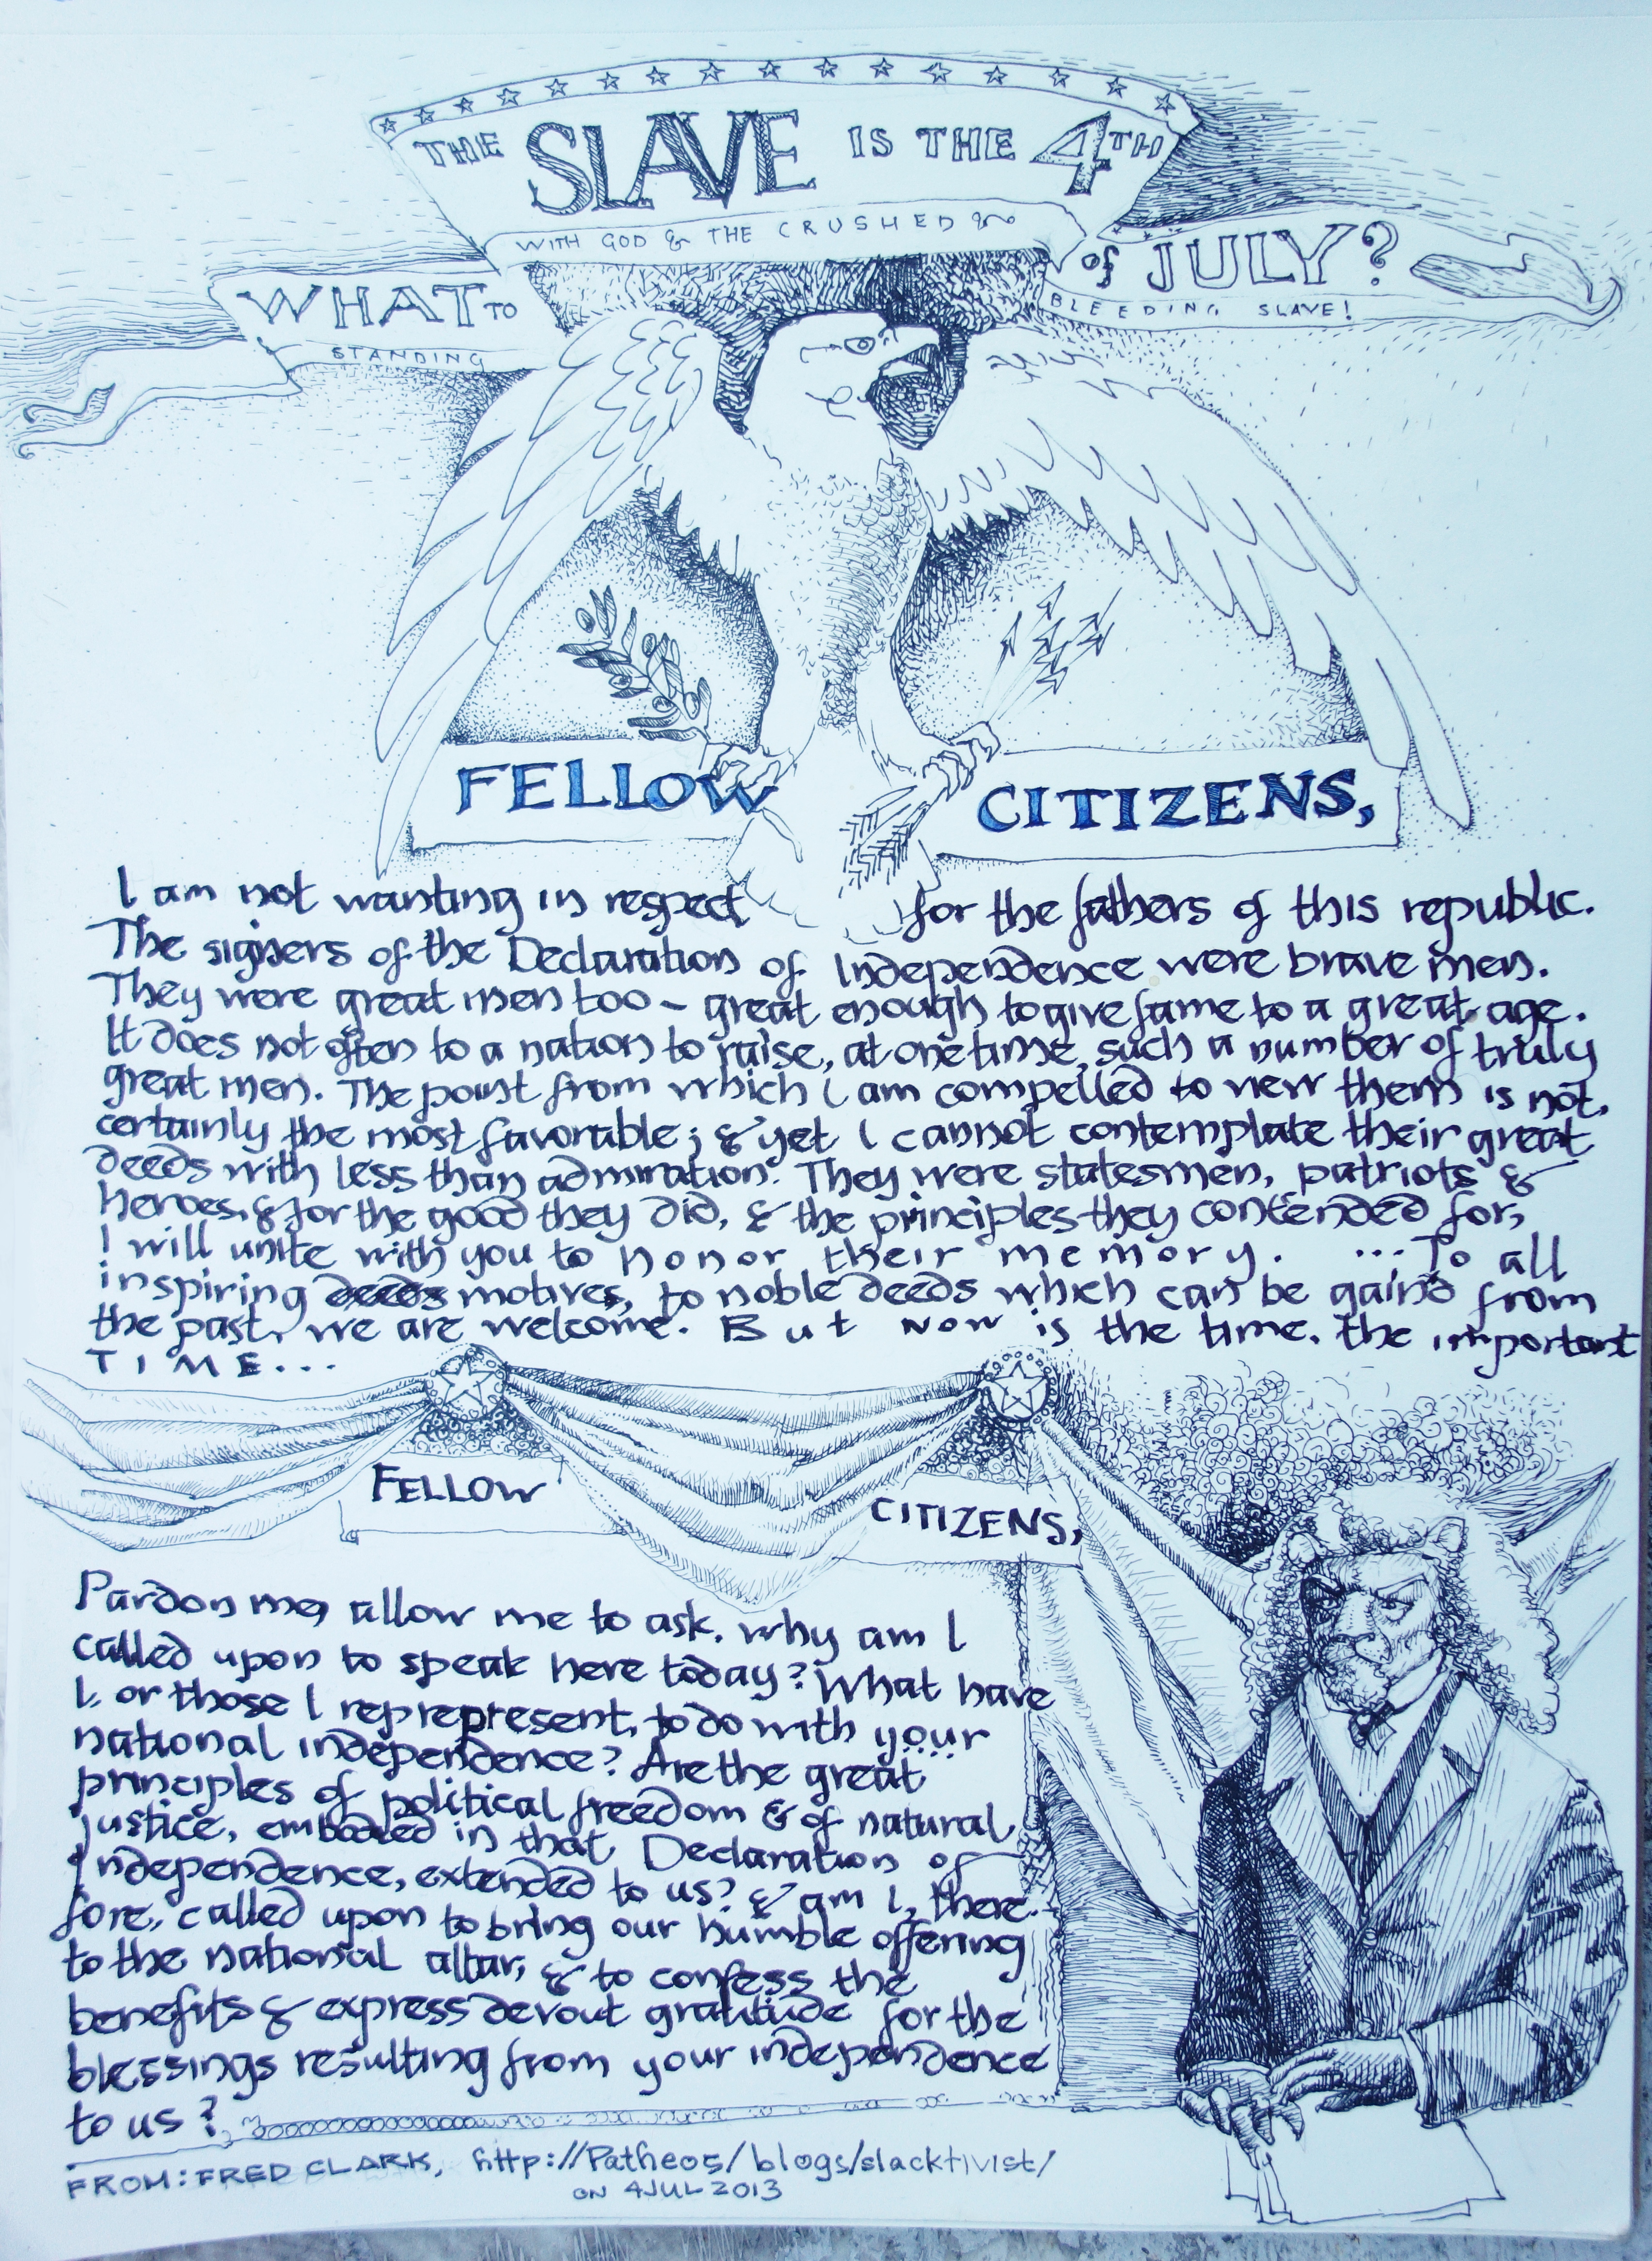 THE SLAVE IS THE 4TH
WITH GOD & THE CRUSHED &
WHAT TO
of JULY?
STANDING
BLEEDING SLAVE!
FELLOW CITIZENS,
I am not wanting in respect for the fathers of this republic.
The signers of the Declaration of Independence were brave men.
They were great men too – great enough to give fame to a great age.
It does not often to a nation to raise, at one time, such a number of truly
great men. The point from which I am compelled to view them is not,
certainly the most favorable; & yet I cannot contemplate their great
deeds with less than admiration. They were statesmen, patriots &
heroes, & for the good they did, & the principles they contended for,
I will unite with you to honor their memory. ...To all
inspiring motives, to noble deeds which can be gain'd from
the past, we are welcome. But now is the time, the important
TIME...
FELLOW CITIZENS,
Pardon me, allow me to ask, why am I
called upon to speak here today? What have
I, or those I reprepresent, to do with your
national independence? Are the great
principles of political freedom & of natural
justice, embodied in that Declaration of
Independence, extended to us? & am I, there-
fore, called upon to bring our humble offering
to the national altar, & to confess the
benefits & express devout gratitude for the
blessings resulting from your independence
to us?
FROM: FRED CLARK, http://Patheos/blogs/slacktivist/
ON 4 JUL 2013